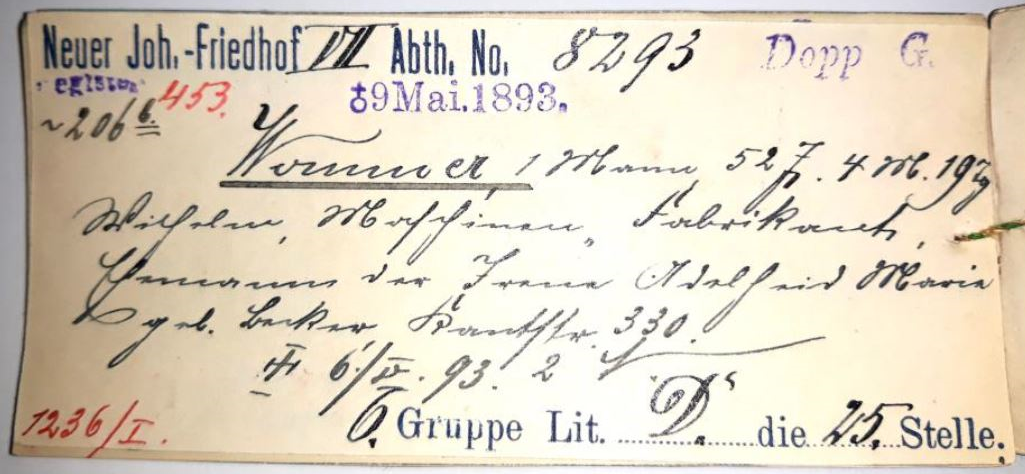 Neuer Joh.-Friedhof VII Abth. No. 8293 Dopp G.
453. 9 Mai. 1893.
206 6.
1 Mann, 52 J. 4 M. 19 Tg
Wilhelm, Maschinen Fabrikant,
Ehemann der Irene Adelheid Marie
geb. Becker, Kantstr. 330.
6/V. 93. 2
1236/I. 6. Gruppe Lit. D. die 25. Stelle.